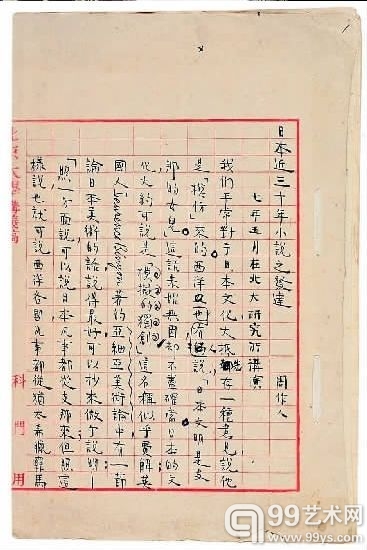 日本近三十年小说之發達
七年五月在北大研究所講演
周作人
我们平常對于日本文化大抵先存在一種意見說他
是「模仿」來的西洋也有人說「日本文明是支
那的女兒」這話未始無因却不盡確當日本的文
化大約可說是「模擬的獨創」這名称似乎費解英
國人Laurence Binyon著的亞細亞美術論中有一節
論日本美術的話說得最好可以抄來做个說明—
「照一方面說可以說日本凡事都從支那來但照這
樣說也就可說西洋各國凡事都從猶太希臘羅馬
北京大學講義稿
科 門 用
99艺术网
www.99ys.com